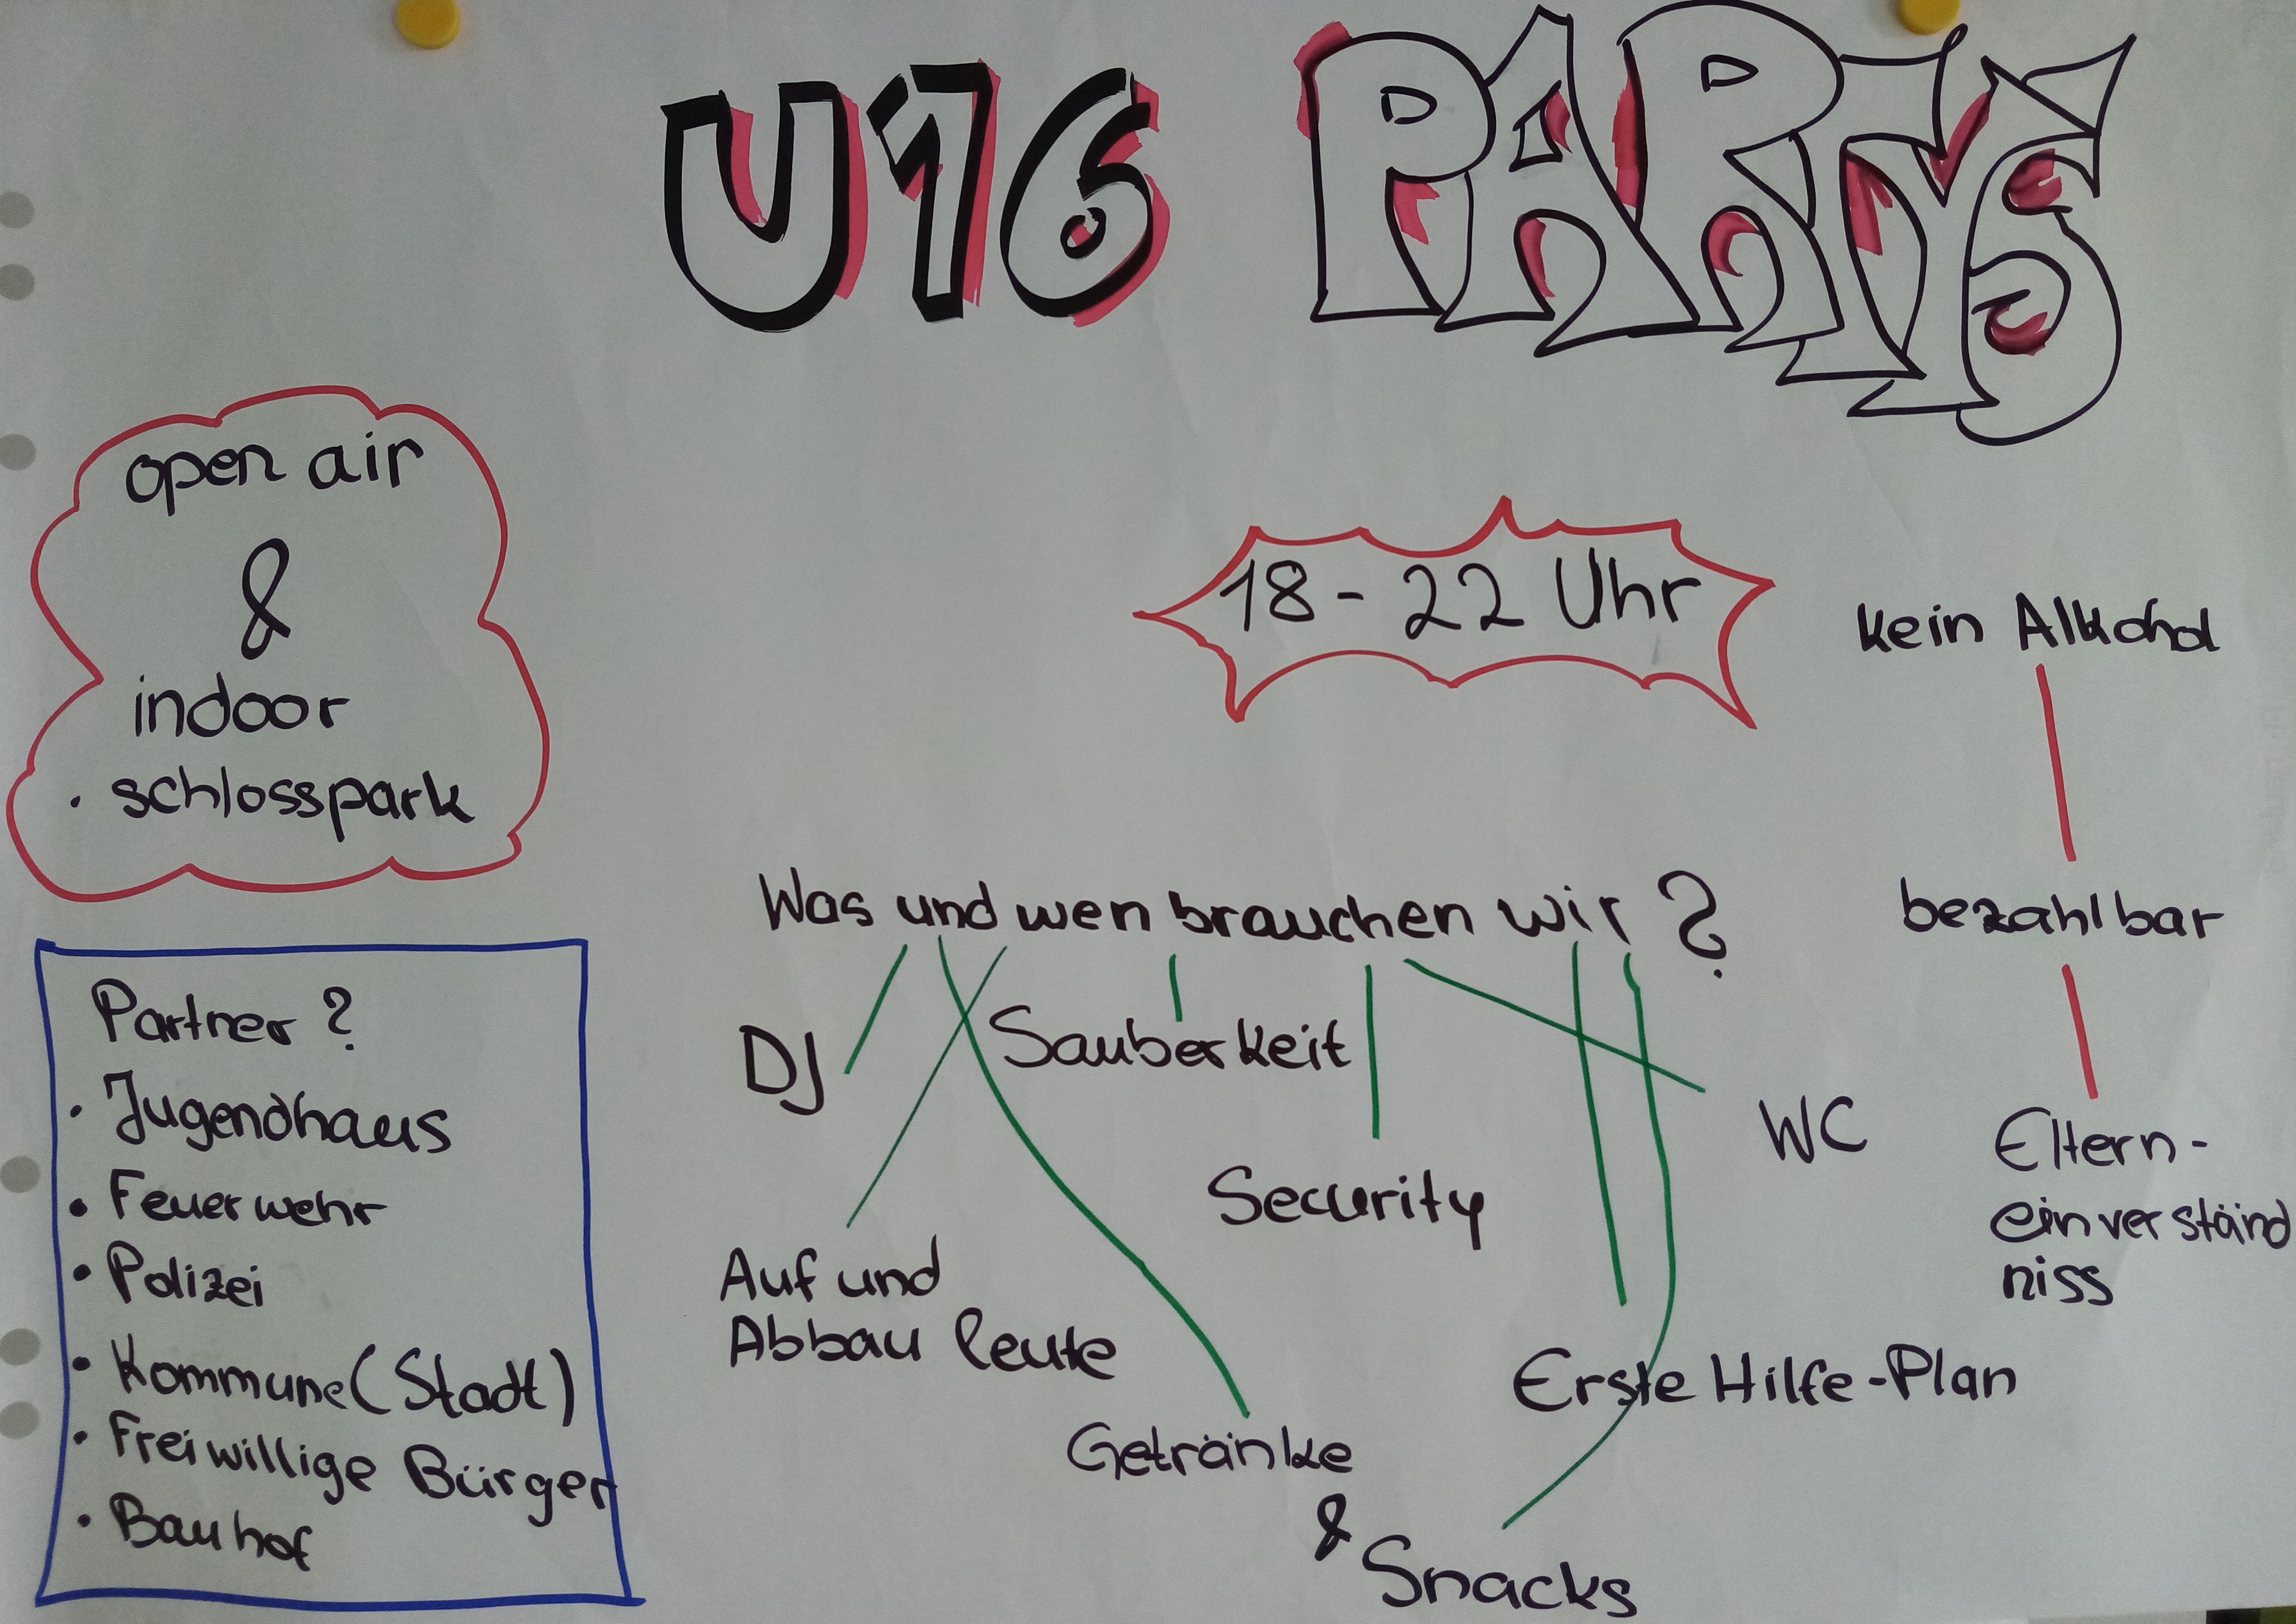 U16 PARTYS
open air
&
indoor
· schlosspark
18 - 22 Uhr
kein Alkohol
bezahlbar
Eltern-
einverständ
niss
Was und wen brauchen wir ?
DJ
Sauberkeit
Security
WC
Auf und
Abbau leute
Getränke
&
Snacks
Erste Hilfe-Plan
Partner ?
· Jugendhaus
· Feuerwehr
· Polizei
· Kommune (Stadt)
· Freiwillige Bürger
· Bauhof